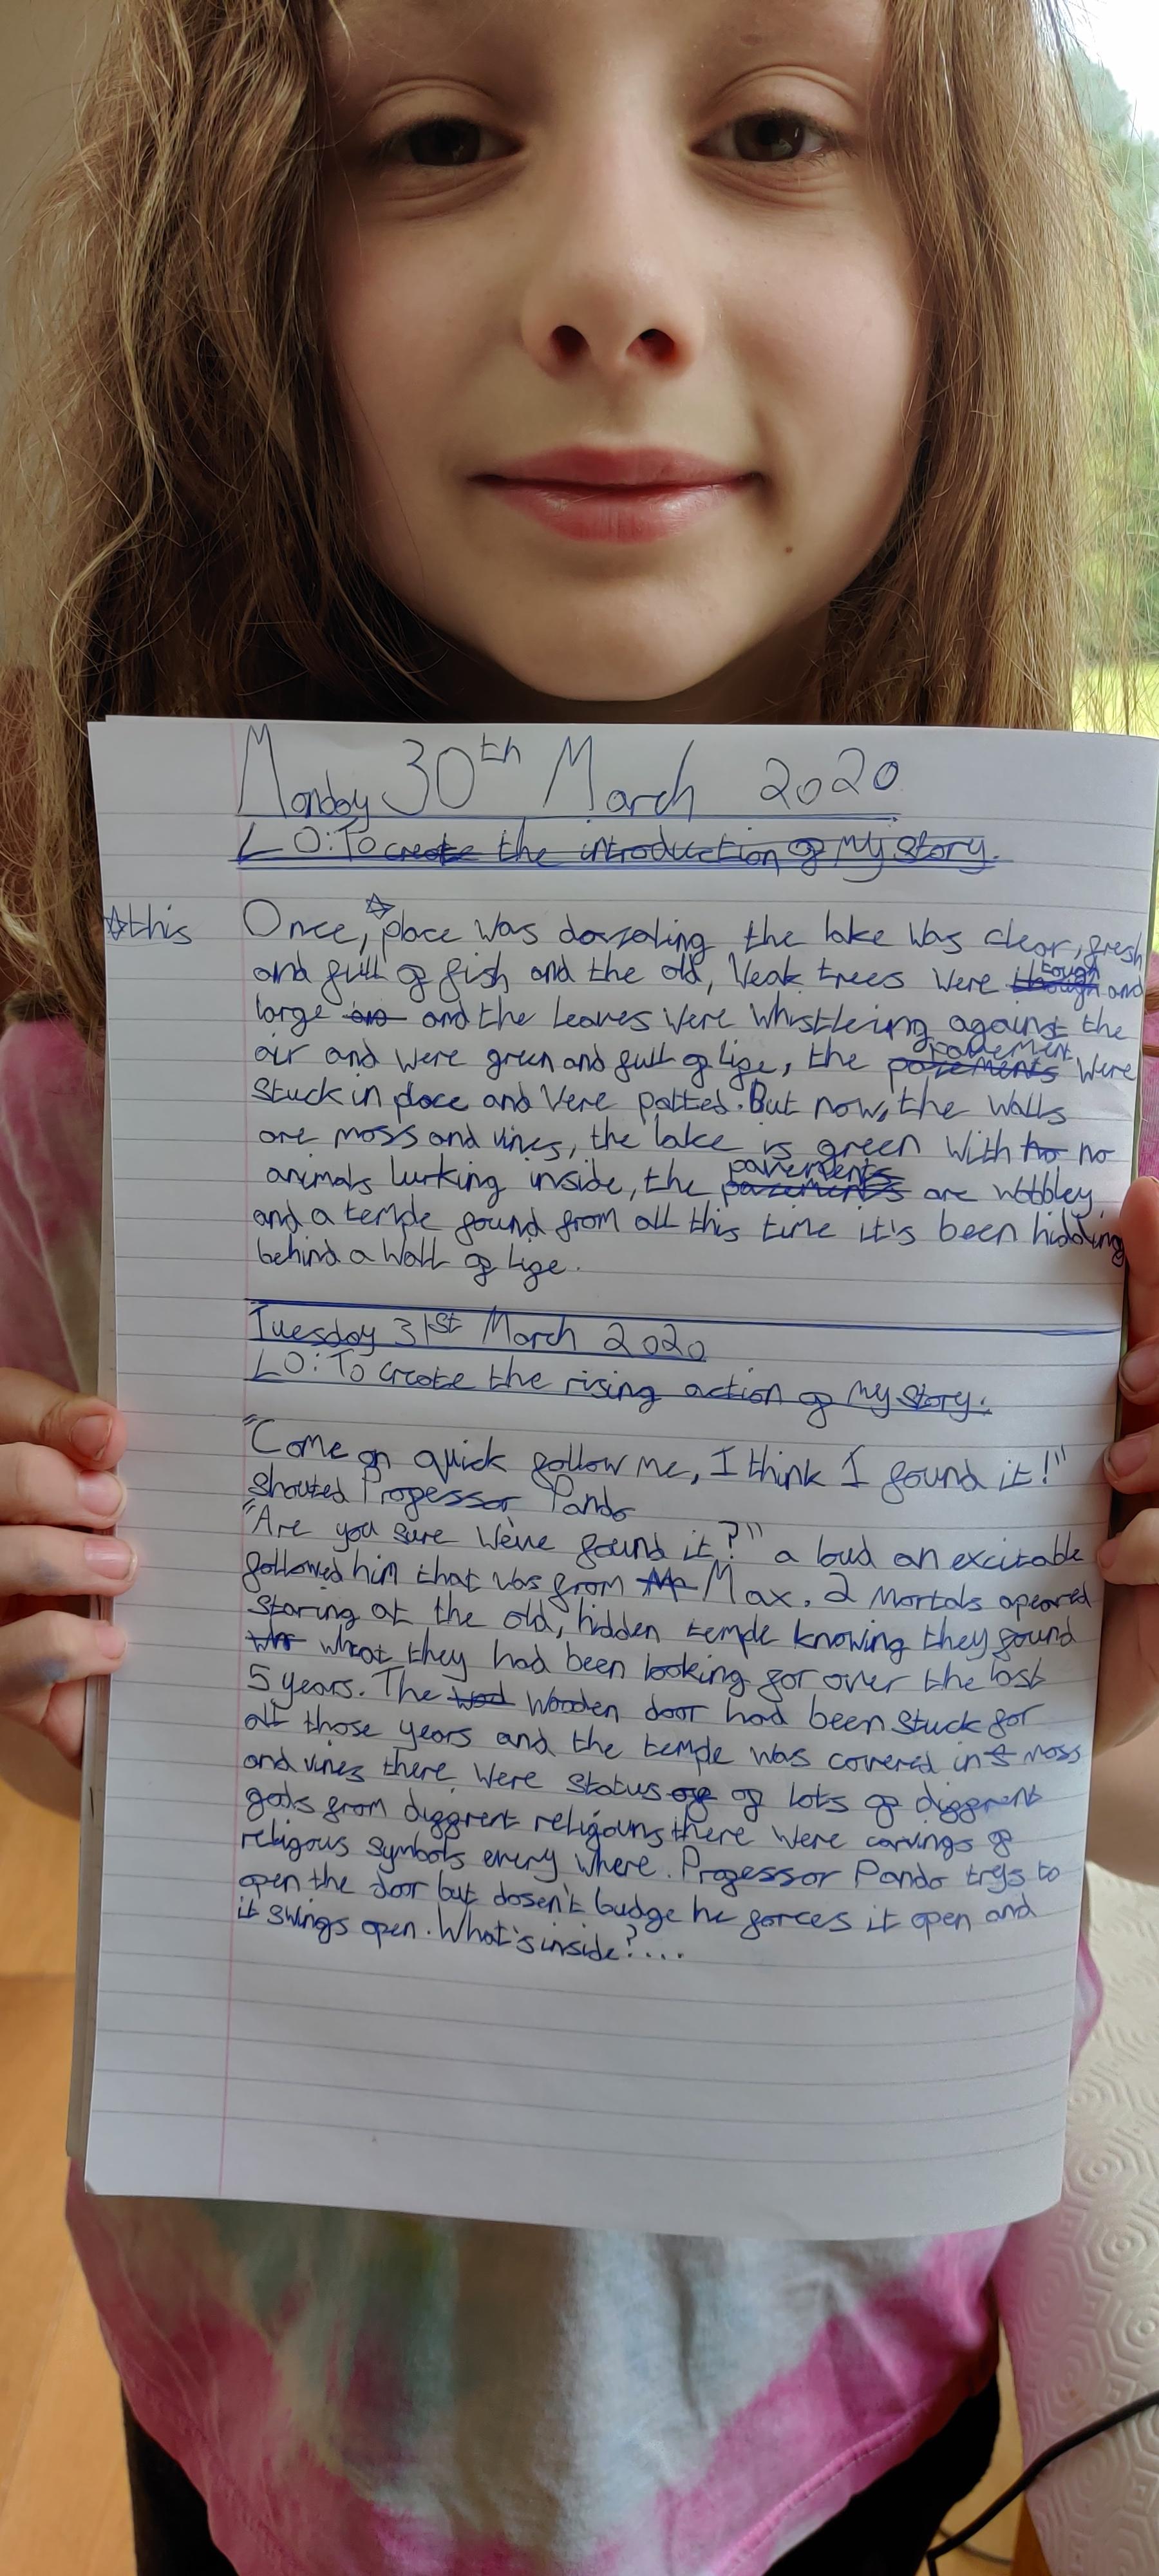 Monday 30th March 2020
LO: To create the introduction of my story.
☆this Once, ☆ place was dazzaling the lake was clear, fresh
and full of fish and the old, Veak trees were though tough and
large and the leaves were whistleing against the
air and were green and full of life, the pazements pavement were
stuck in place and Vere patted. But now, the walls
are moss and vines, the lake is green with no no
animals lurking inside, the pazements pavements are wobbley
and a temple found from all this time it's been hidding
behind a wall of life.
Tuesday 31st March 2020
LO: To create the rising action of my story.
"Come on quick follow me, I think I found it!"
shouted Professor Pando
"Are you sure we've found it?" a loud an excitable
followed him that was from Max. 2 mortals apeared
staring at the old, hidden temple knowing they found
what they had been looking for over the last
5 years. The wod wooden door had been stuck for
all those years and the temple was covered in moss
and vines there were status of of lots of diffrent
gods from diffrent religouns there were carvings of
religous symbols every where. Professor Pando trys to
open the door but dosen't budge he forces it open and
it swings open. What's inside?....